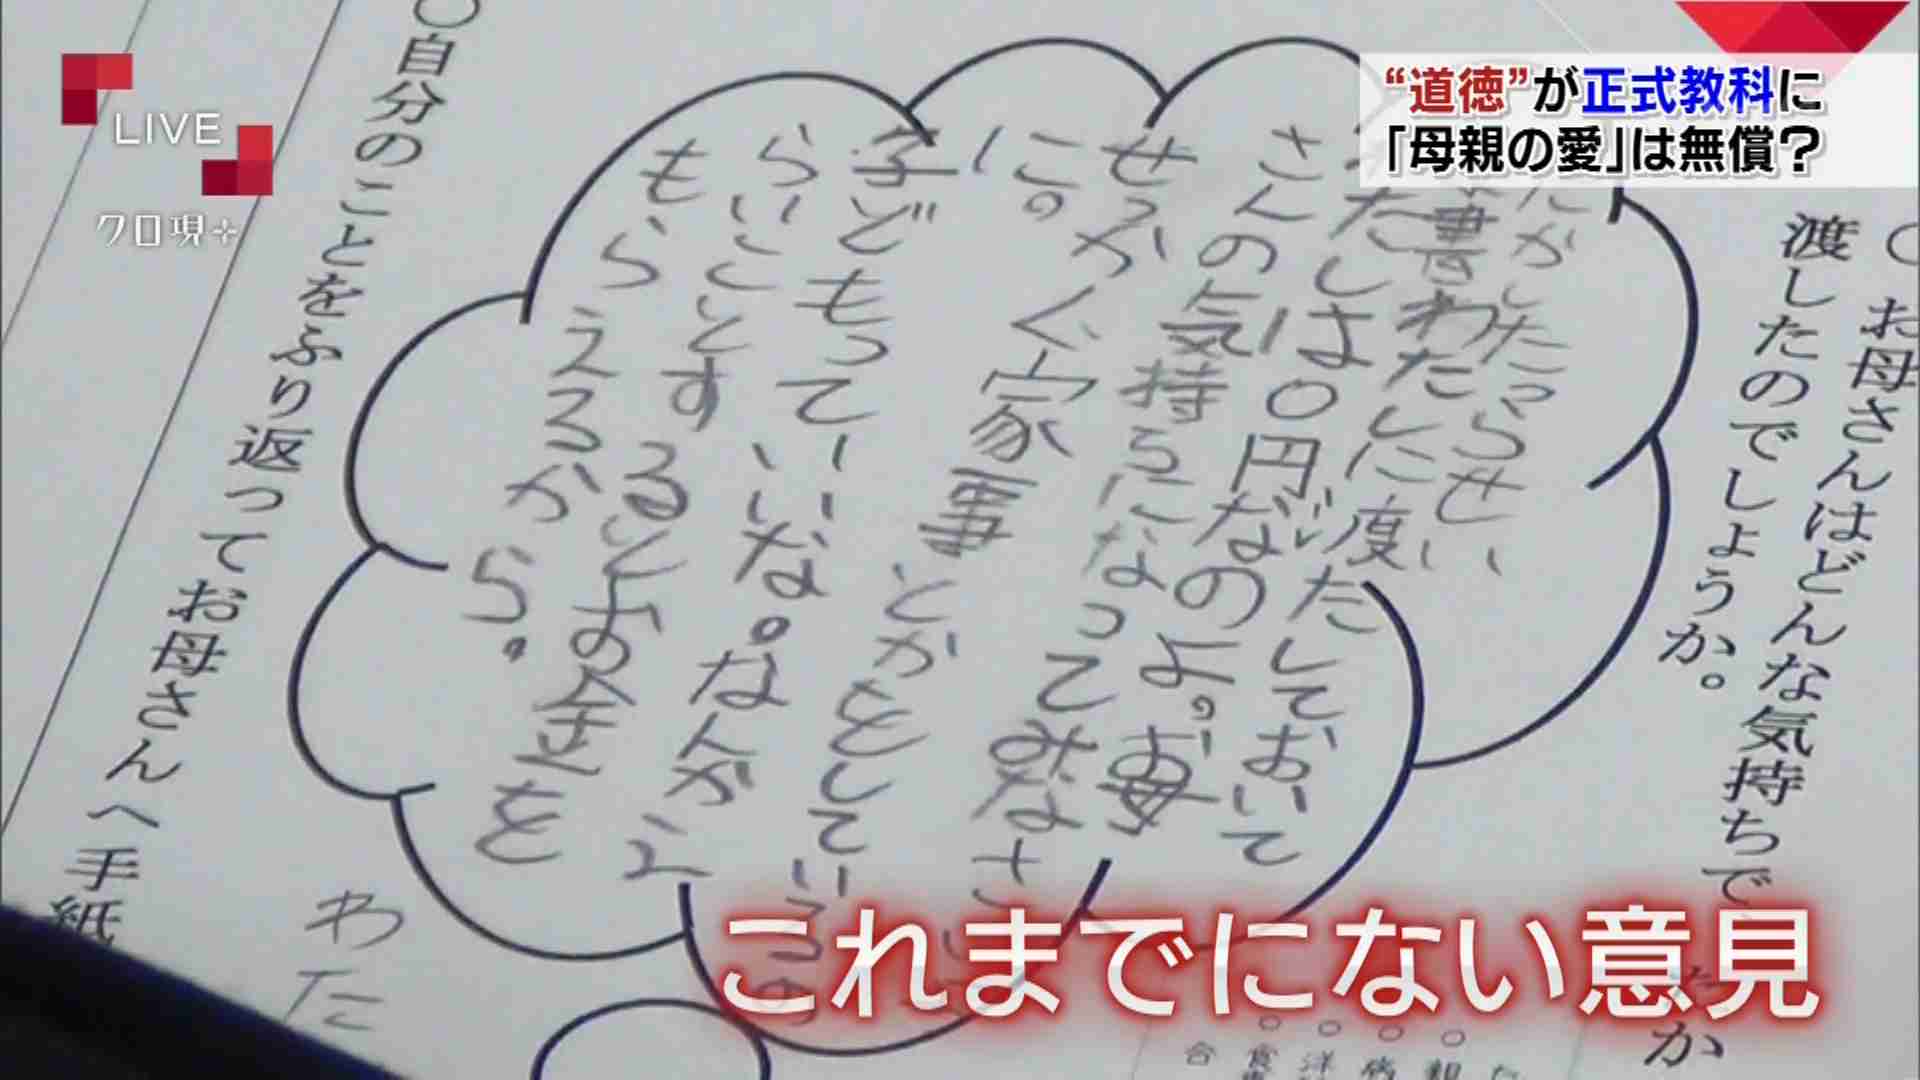 “道徳”が正式教科に
「母親の愛」は無償？
LIVE
クロ現+
お母さんはどんな気持ちで
渡したのでしょうか。
たかしたっらせい
書わたしに度
たしは0円なのよ。お母
だしておいて
さんの気持ちになってみなさい
せっかく家事とかをしているの
に。
子どもっていいな。なんかえ
らいことするとお金を
もらえるから。
○自分のことをふり返ってお母さんへ手紙
わた
これまでにない意見